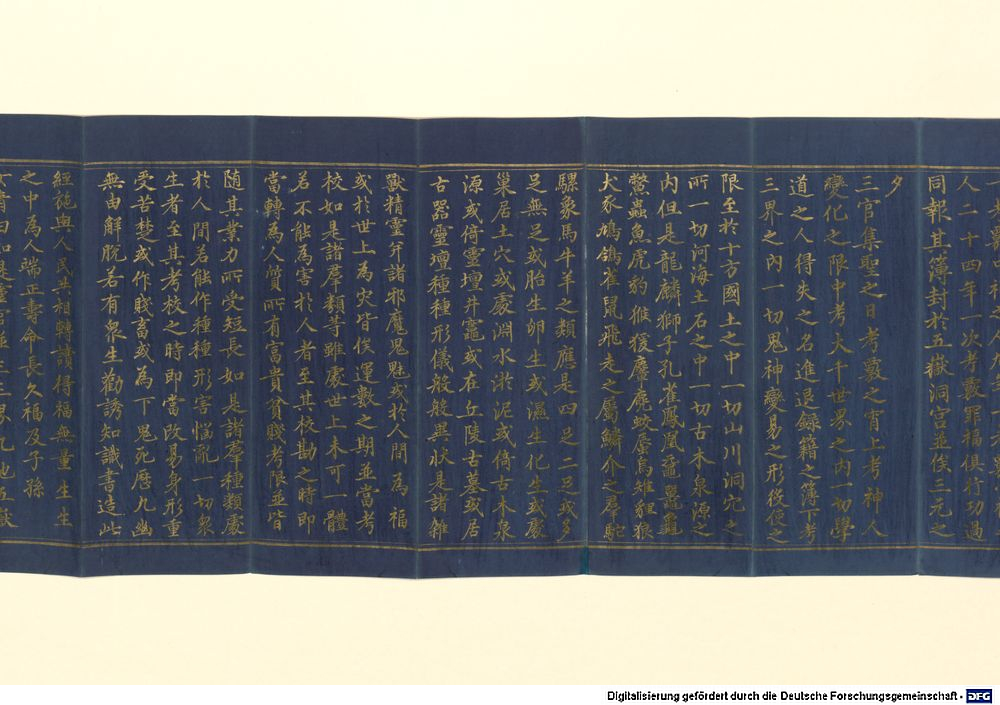 人二十四年一次考覈罪福俱行功過
同報其簿封於五嶽洞宮並俟三元之
夕
三官集聖之日考覈之宵上考神人
變化之限中考大千世界之內一切學
道之人得失之名進退錄籍之簿下考
三界之內一切鬼神變易之形役使之
限至於十方國土之中一切山川洞穴之
所一切河海土石之中一切古木泉源之
內但是龍麟獅子孔雀鳳凰黿鼉龜
鱉蟲魚虎豹猴猨麞麂蛟蜃烏雉狸狼
犬豕鳩鴿雀鼠飛走之屬鱗介之羣駝
騾象馬牛羊之類應是四足二足或多
足無足或胎生卵生或濕生化生或處
巢居土穴或處淵水淤泥或倚古木泉
源或停靈壇井竈或在丘陵古墓或居
古器靈壇種種形儀般般異狀是諸雜
獸精靈并諸邪魔鬼魅或於人間為福
或於世上為灾皆俟運數之期並當考
校如是諸羣類等雖處世上未可一體
若不能為害於人者至其校勘之時即
當轉為人質所有富貴貧賤考限並皆
随其業力所受短長如是諸羣種類處
於人間若能作種種形害惱亂一切衆
生者至其考校之時即當改易身形重
受苦楚或作賤畜或為下鬼死歷九幽
無由解脫若有衆生勸誘知識書造此
經施與人民共相轉讀得福無量生生
之中為人端正壽命長久福及子孫
Digitalisierung gefördert durch die Deutsche Forschungsgemeinschaft - DFG